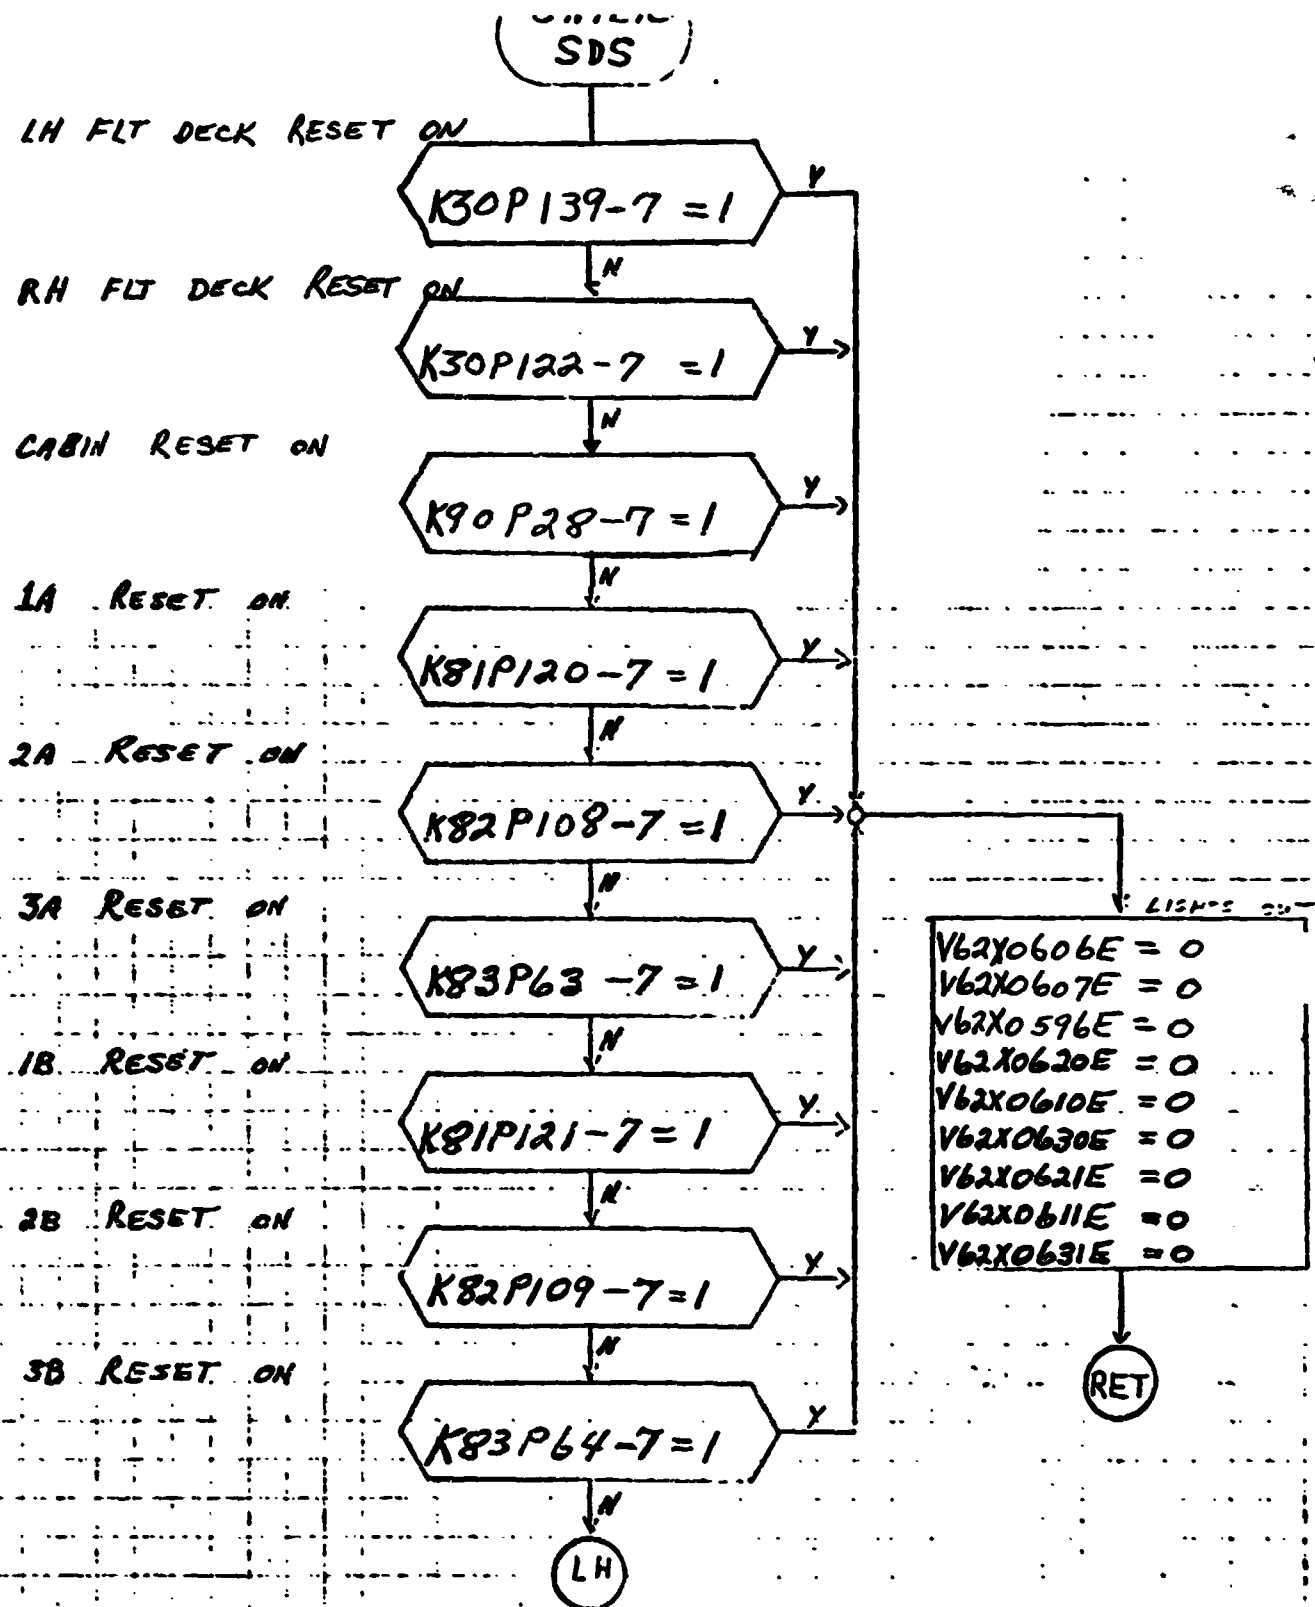 SDS
LH FLT DECK RESET ON
K30P139-7 = 1
Y
N
RH FLT DECK RESET ON
K30P122-7 = 1
Y
N
CABIN RESET ON
K90P28-7 = 1
Y
N
1A RESET ON
K81P120-7 = 1
Y
N
2A RESET ON
K82P108-7 = 1
Y
N
3A RESET ON
K83P63-7 = 1
Y
N
1B RESET ON
K81P121-7 = 1
Y
N
2B RESET ON
K82P109-7 = 1
Y
N
3B RESET ON
K83P64-7 = 1
Y
N
LH
LIGHTS
V62X0606E = 0
V62X0607E = 0
V62X0596E = 0
V62X0620E = 0
V62X0610E = 0
V62X0630E = 0
V62X0621E = 0
V62X0611E = 0
V62X0631E = 0
RET